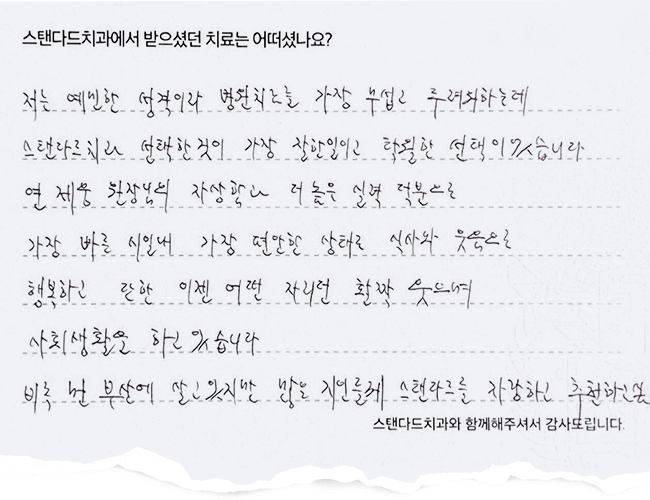 스탠다드치과에서 받으셨던 치료는 어떠셨나요?
저는 예민한 성격이라 병원치료를 가장 무섭고 두려워하는데
스탠다드치과 선택한것이 가장 잘한일이고 탁월한 선택이였습니다
연제웅 원장님의 자상함과 더 높은 실력 덕분으로
가장 빠른 시일내 가장 편안한 상태로 식사와 웃음으로
행복하고 편한 이젠 어떤 자리던 활짝 웃으며
사회생활을 하고 있습니다
비록 먼 부산에 살고있지만 많은 지인들께 스탠다드를 자랑하고 추천하고싶
스탠다드치과와 함께해주셔서 감사드립니다.